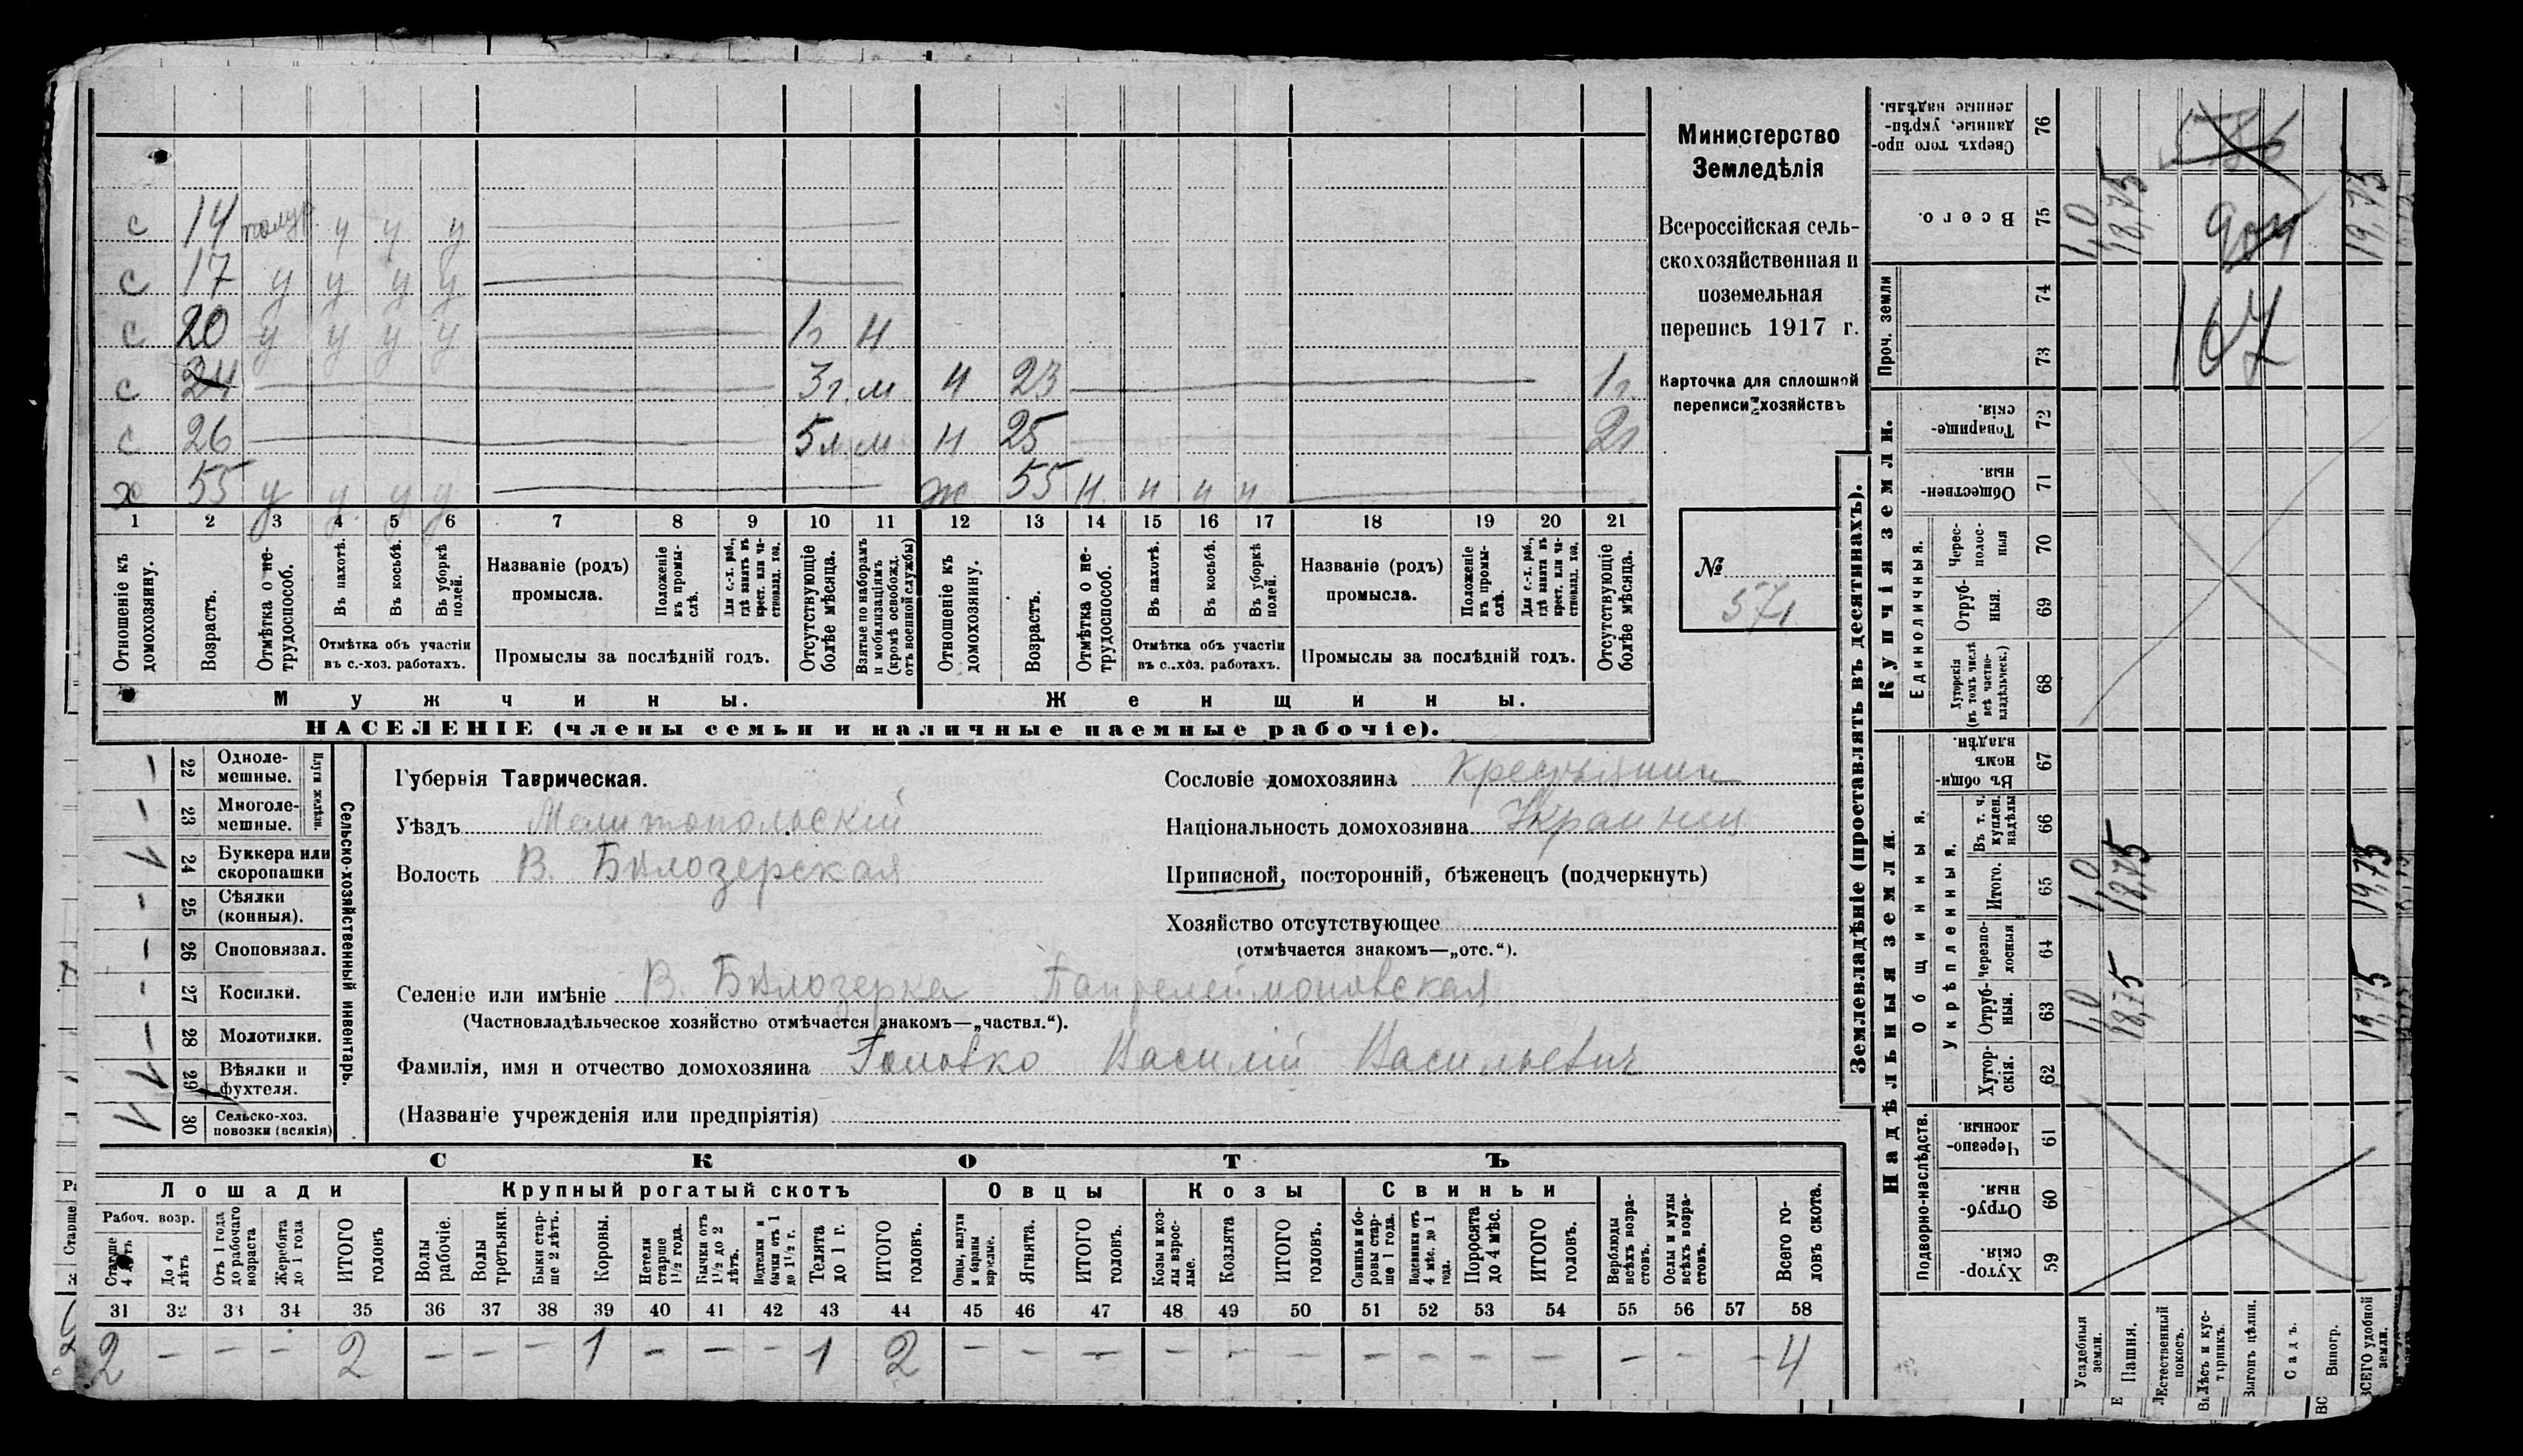 с 14 полур. у у у
с 17 у у у у
с 20 у у у у 1г. н
с 24 3г. м н 23 1г.
с 26 5л. м н 25 2г
х 55 у у у у ж 55 н. н н н
1 2 3 4 5 6 7 8 9 10 11 12 13 14 15 16 17 18 19 20 21
Отношеніе къ домохозяину.
Возрастъ.
Отмѣтка о не-трудоспособ.
Въ пахотѣ.
Въ косьбѣ.
Въ уборкѣ полей.
Отмѣтка объ участіи въ с.-хоз. работахъ.
Названіе (родъ) промысла.
Положеніе въ промы-слѣ.
Для с.-х. раб., гдѣ занятъ въ крест. или ча-стновлад. хоз.
Промыслы за послѣдній годъ.
Отсутствующіе болѣе мѣсяца.
Взятые по наборамъ и мобилизаціямъ (кромѣ освобожд. отъ военной службы)
Отношеніе къ домохозяину.
Возрастъ.
Отмѣтка о не-трудоспособ.
Въ пахотѣ.
Въ косьбѣ.
Въ уборкѣ полей.
Отмѣтка объ участіи въ с.-хоз. работахъ.
Названіе (родъ) промысла.
Положеніе въ промы-слѣ.
Для с.-х. раб., гдѣ занята въ крест. или ча-стновлад. хоз.
Промыслы за послѣдній годъ.
Отсутствующіе болѣе мѣсяца.
Мужчины. Женщины.
НАСЕЛЕНІЕ (члены семьи и наличные наемные рабочіе).
Министерство
Земледѣлія
Всероссійская сель-
скохозяйственная и
поземельная
перепись 1917 г.
Карточка для сплошной
переписи хозяйствъ
№
571.
22 Одноле-мешные.
23 Многоле-мешные.
Плуги желѣзн.
24 Буккера или скоропашки
25 Сѣялки (конныя).
26 Сноповязал.
27 Косилки.
28 Молотилки.
29 Вѣялки и фухтеля.
30 Сельско-хоз. повозки (всякія)
Сельско-хозяйственный инвентарь.
Губернія Таврическая.
Уѣздъ Мелитопольскій
Волость В. Бѣлозерская
Сословіе домохозяина Крестьянин
Національность домохозяина Украинец
Приписной, посторонній, бѣженецъ (подчеркнуть)
Хозяйство отсутствующее
(отмѣчается знакомъ—„отс.“).
Селеніе или имѣніе В. Бѣлозерка Пантелеймоновская
(Частновладѣльческое хозяйство отмѣчается знакомъ—„частвл.“).
Фамилія, имя и отчество домохозяина Головко Василій Васильевич
(Названіе учрежденія или предпріятія)
СКОТЪ
Лошади Крупный рогатый скотъ Овцы Козы Свиньи
Рабоч. возр.
Старше 4 лѣтъ
До 4 лѣтъ
Отъ 1 года до рабочаго возраста
Жеребята до 1 года
ИТОГО головъ
Волы рабочіе.
Волы третьяки.
Быки стар-ше 2 лѣтъ.
Коровы.
Нетели старше 1½ года.
Бычки отъ 1½ до 2 лѣтъ.
Подтелки и бычки отъ 1 до 1½ г.
Телята до 1 г.
ИТОГО головъ.
Овцы, валухи и бараны взрослые.
Ягнята.
ИТОГО головъ.
Козы и коз-лы взрос-лые.
Козлята
ИТОГО головъ.
Свиньи и бо-ровы стар-ше 1 года.
Подсвинки отъ 4 мѣс. до 1 года.
Поросята до 4 мѣс.
ИТОГО головъ.
Верблюды всѣхъ возра-стовъ.
Ослы и мулы всѣхъ возра-стовъ.
Всего го-ловъ скота.
31 32 33 34 35 36 37 38 39 40 41 42 43 44 45 46 47 48 49 50 51 52 53 54 55 56 57 58
2 – – – 2 – – – 1 – – – 1 2 – – – – – – – – – – – – – 4
Землевладѣніе (проставлять въ десятинахъ).
Сверхъ того про-данные, укрѣп-ленные надѣлы. 76
Всего. 75
Проч. земли 74 73
Купчія земли.
Товарище-скія. 72
Обществен-ныя. 71
Единоличныя.
Черес-полос-ныя 70
Отруб-ныя. 69
Хуторскія (въ томъ числѣ всѣ частно-владѣльческ.) 68
Надѣльныя земли.
Общинныя.
Въ общи-номъ владѣн. 67
Укрѣпленныя.
Въ т. ч. куплен. надѣлы 66
Итого. 65
Черезпо-лосныя 64
Отруб-ныя. 63
Хутор-скія. 62
Подворно-наслѣдств.
Черезпо-лосныя. 61
Отруб-ныя. 60
Хутор-скія 59
Усадебныя земли.
Пашня.
Естественный покосъ.
Лѣсъ и кус-тарникъ.
Выгонъ цѣлин.
Садъ.
Виногр.
ВСЕГО удобной земли.
1,0 18,75 904 19,75
167
1,0 18,75 19,75
1,0 18,75 19,75